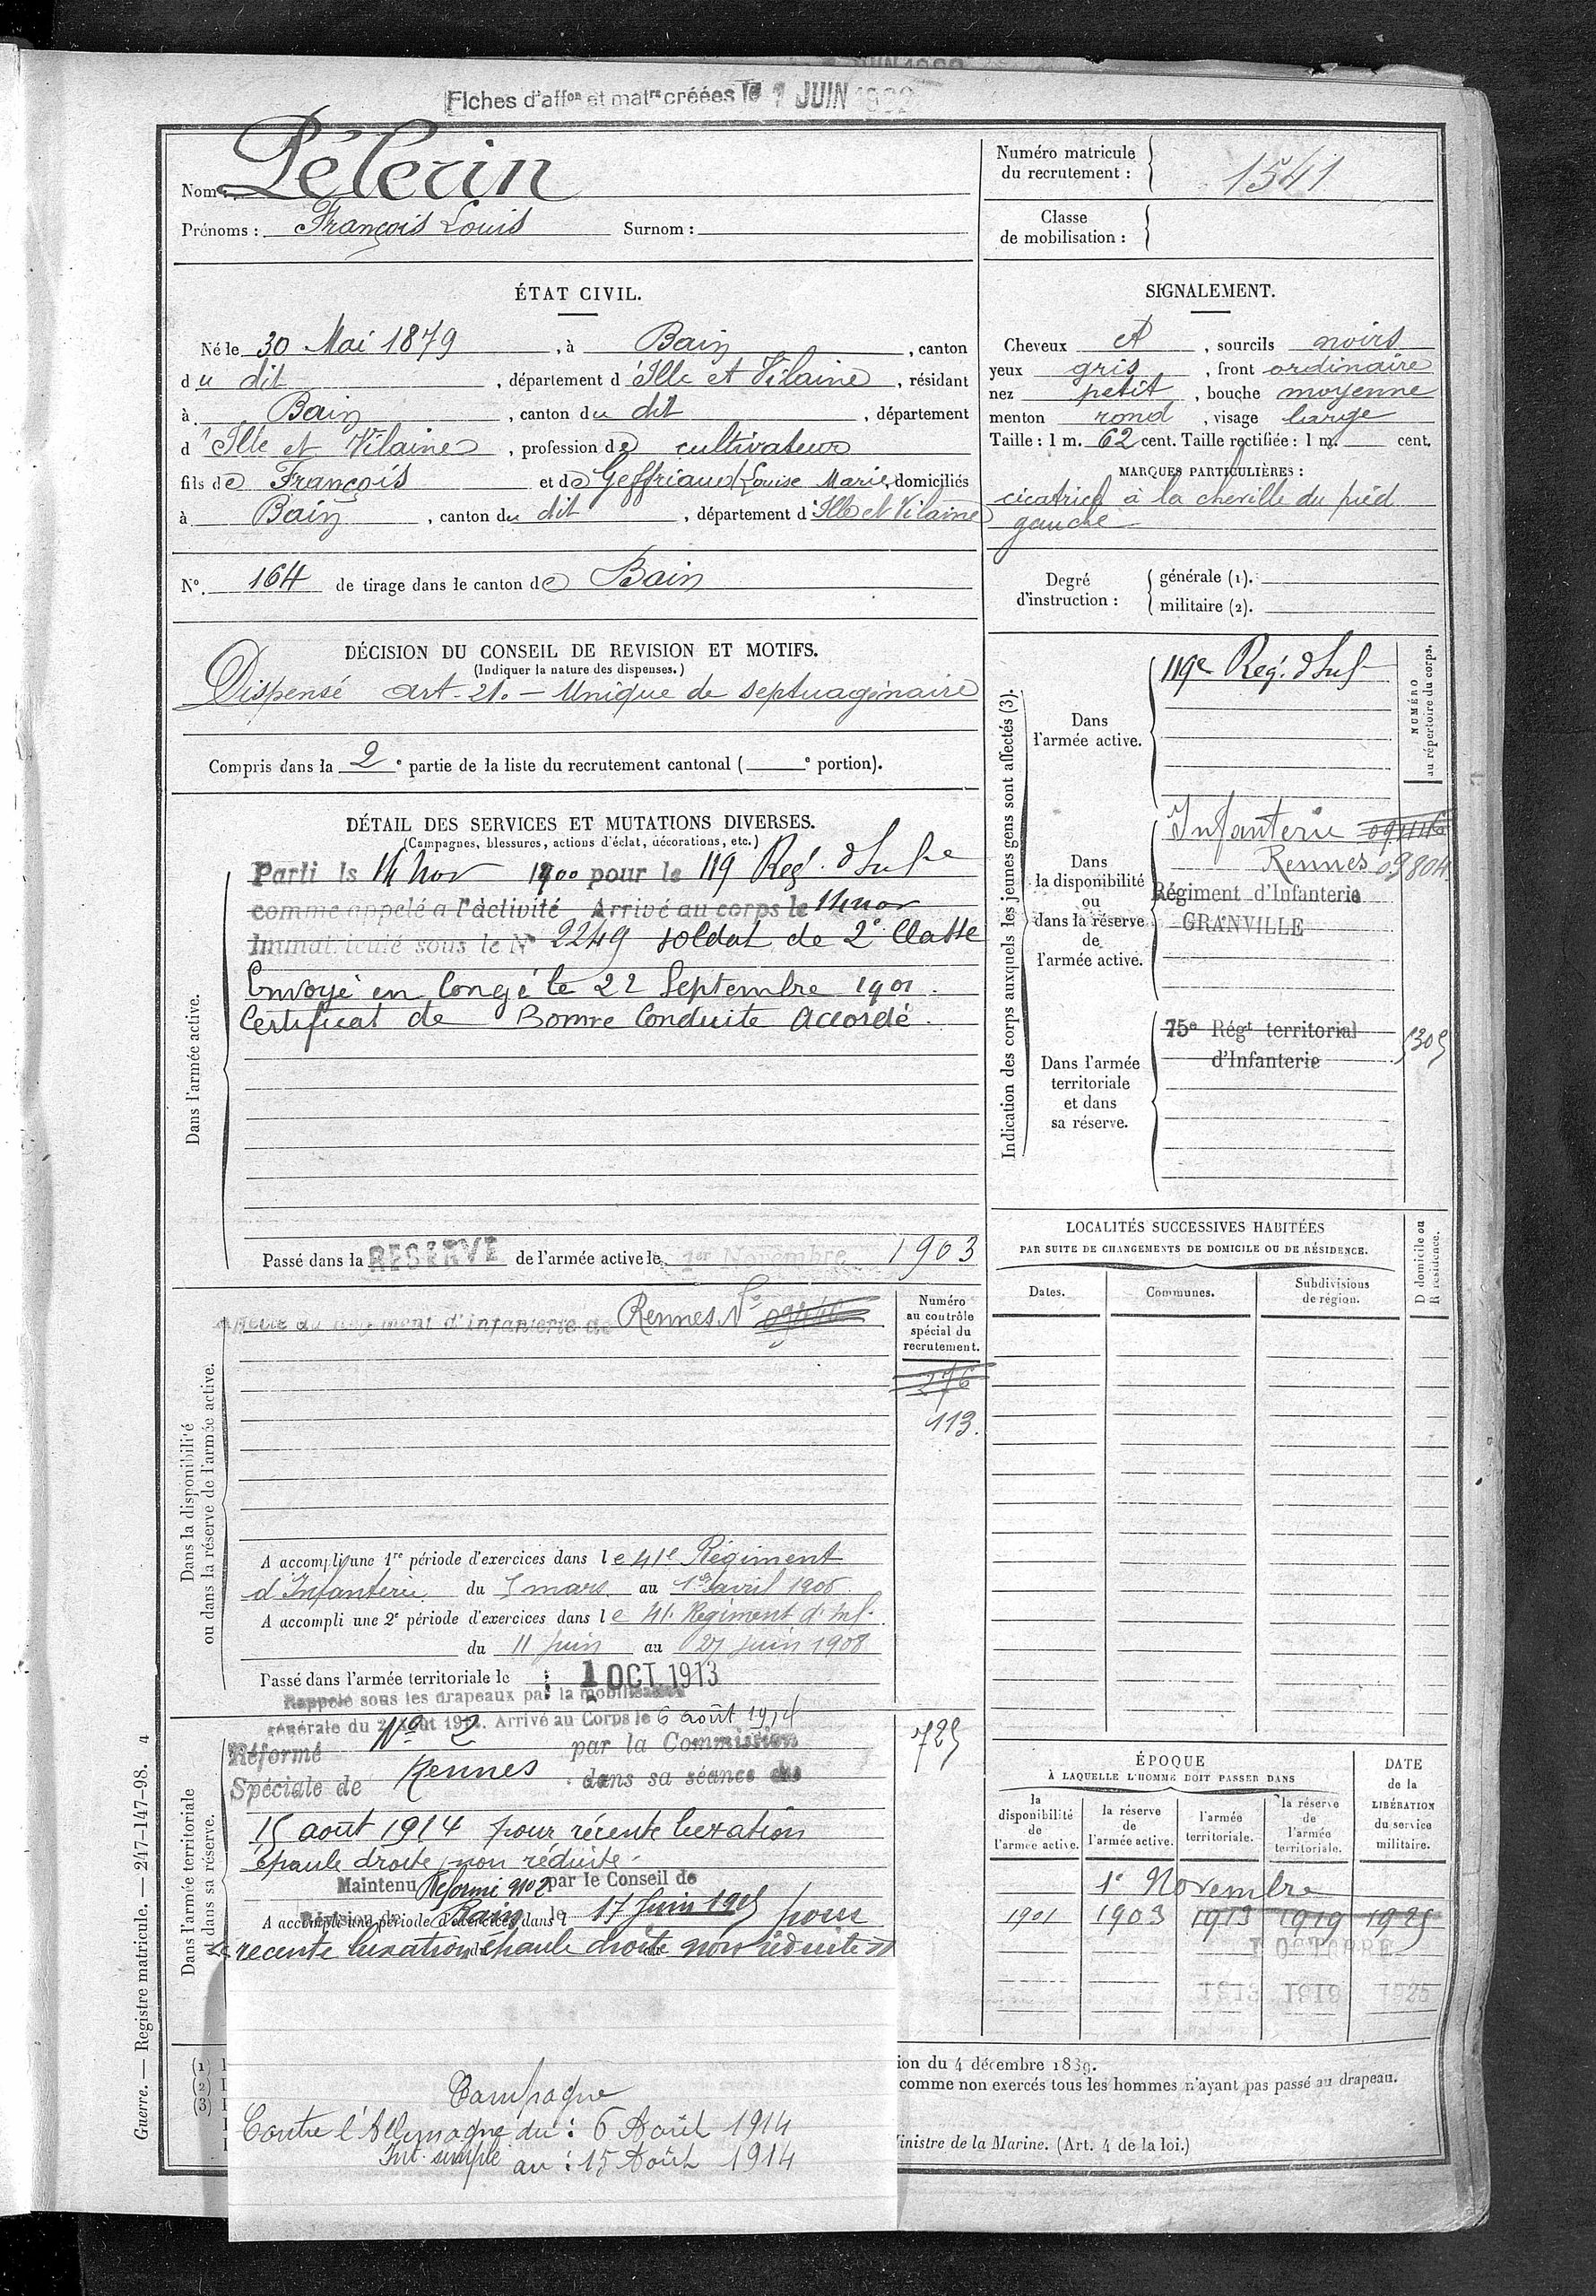 Fiches d'affon et matre créées le 1 JUIN
Nom : Pélerin
Prénoms : François Louis Surnom :
Numéro matricule
du recrutement : 1541
Classe
de mobilisation :
ÉTAT CIVIL.
Né le 30 Mai 1879, à Bain, canton
du dit, département d'Ille et Vilaine, résidant
à Bain, canton du dit, département
d'Ille et Vilaine, profession de cultivateur
fils de François et de Geffriaud Louise Marie, domiciliés
à Bain, canton du dit, département d'Ille et Vilaine
N° 164 de tirage dans le canton de Bain
SIGNALEMENT.
Cheveux, sourcils noirs
yeux gris, front ordinaire
nez petit, bouche moyenne
menton rond, visage large
Taille : 1 m. 62 cent. Taille rectifiée : 1 m. cent.
MARQUES PARTICULIÈRES :
cicatrice à la cheville du pied
gauche
Degré
d'instruction :
générale (1).
militaire (2).
DÉCISION DU CONSEIL DE REVISION ET MOTIFS.
(Indiquer la nature des dispenses.)
Dispensé art. 21. - Unique de septuagénaire
Compris dans la 2e partie de la liste du recrutement cantonal ( e portion).
DÉTAIL DES SERVICES ET MUTATIONS DIVERSES.
(Campagnes, blessures, actions d'éclat, décorations, etc.)
Dans l'armée active.
Parti le 14 Nov 1900 pour le 119 Reg. d'Infie
comme appelé a l'activité Arrivé au corps le 14 nov
Immatriculé sous le N° 2249 soldat de 2e Classe
Envoyé en Congé le 22 Septembre 1901.
Certificat de Bonne Conduite Accordé.
Passé dans la RESERVE de l'armée active le 1er Novembre 1903
Indication des corps auxquels les jeunes gens sont affectés (3).
NUMÉRO
au répertoire du corps.
Dans
l'armée active.
119e Reg. d'Inf
Dans
la disponibilité
ou
dans la réserve
de
l'armée active.
Infanterie
Rennes 09804
Régiment d'Infanterie
GRANVILLE
Dans l'armée
territoriale
et dans
sa réserve.
75e Régt territorial
d'Infanterie
5305
Dans la disponibilité
ou dans la réserve de l'armée active.
Affecté au Régiment d'infanterie de Rennes N°
Numéro
au contrôle
spécial du
recrutement.
276
113.
A accompli une 1re période d'exercices dans le 41e Régiment
d'Infanterie du 5 mars au 1er avril 1906
A accompli une 2e période d'exercices dans le 41. Régiment d'Inf.
du 11 juin au 27 juin 1908
Passé dans l'armée territoriale le 1 OCT 1913
LOCALITÉS SUCCESSIVES HABITÉES
PAR SUITE DE CHANGEMENTS DE DOMICILE OU DE RÉSIDENCE.
Dates.
Communes.
Subdivisions
de région.
D domicile ou
R résidence.
Dans l'armée territoriale
et dans sa réserve.
Rappelé sous les drapeaux par la mobilisation
générale du 2 Août 1914. Arrivé au Corps le 6 août 1914
Réformé N° 2 par la Commission
Spéciale de Rennes dans sa séance du
15 août 1914 pour récente luxation
épaule droite non réduite.
Maintenu Réformé no 2 par le Conseil de
Révision de Bain le 17 Juin 1915 pour
A accompli une période d'exercices dans l
recente luxation épaule droite non réduite
725
Campagne
Contre l'Allemagne du : 6 Août 1914
Int. simple au : 15 Août 1914
ÉPOQUE
À LAQUELLE L'HOMME DOIT PASSER DANS
la
disponibilité
de
l'armée active.
la réserve
de
l'armée active.
l'armée
territoriale.
la réserve
de
l'armée
territoriale.
DATE
de la
LIBÉRATION
du service
militaire.
1er Novembre
1901 1903 1913 1919 1925
1 OCTOBRE
1913 1919 1925
(1)
(2)
(3)
ion du 4 décembre 1889.
comme non exercés tous les hommes n'ayant pas passé au drapeau.
Ministre de la Marine. (Art. 4 de la loi.)
Guerre. — Registre matricule. — 247-147-98. 4